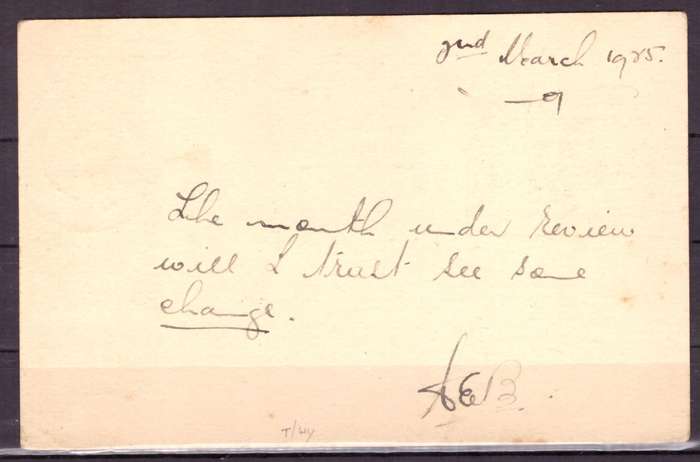 2nd March 1925.
The month under review
will I trust see some
change.
AEB.
T/WY